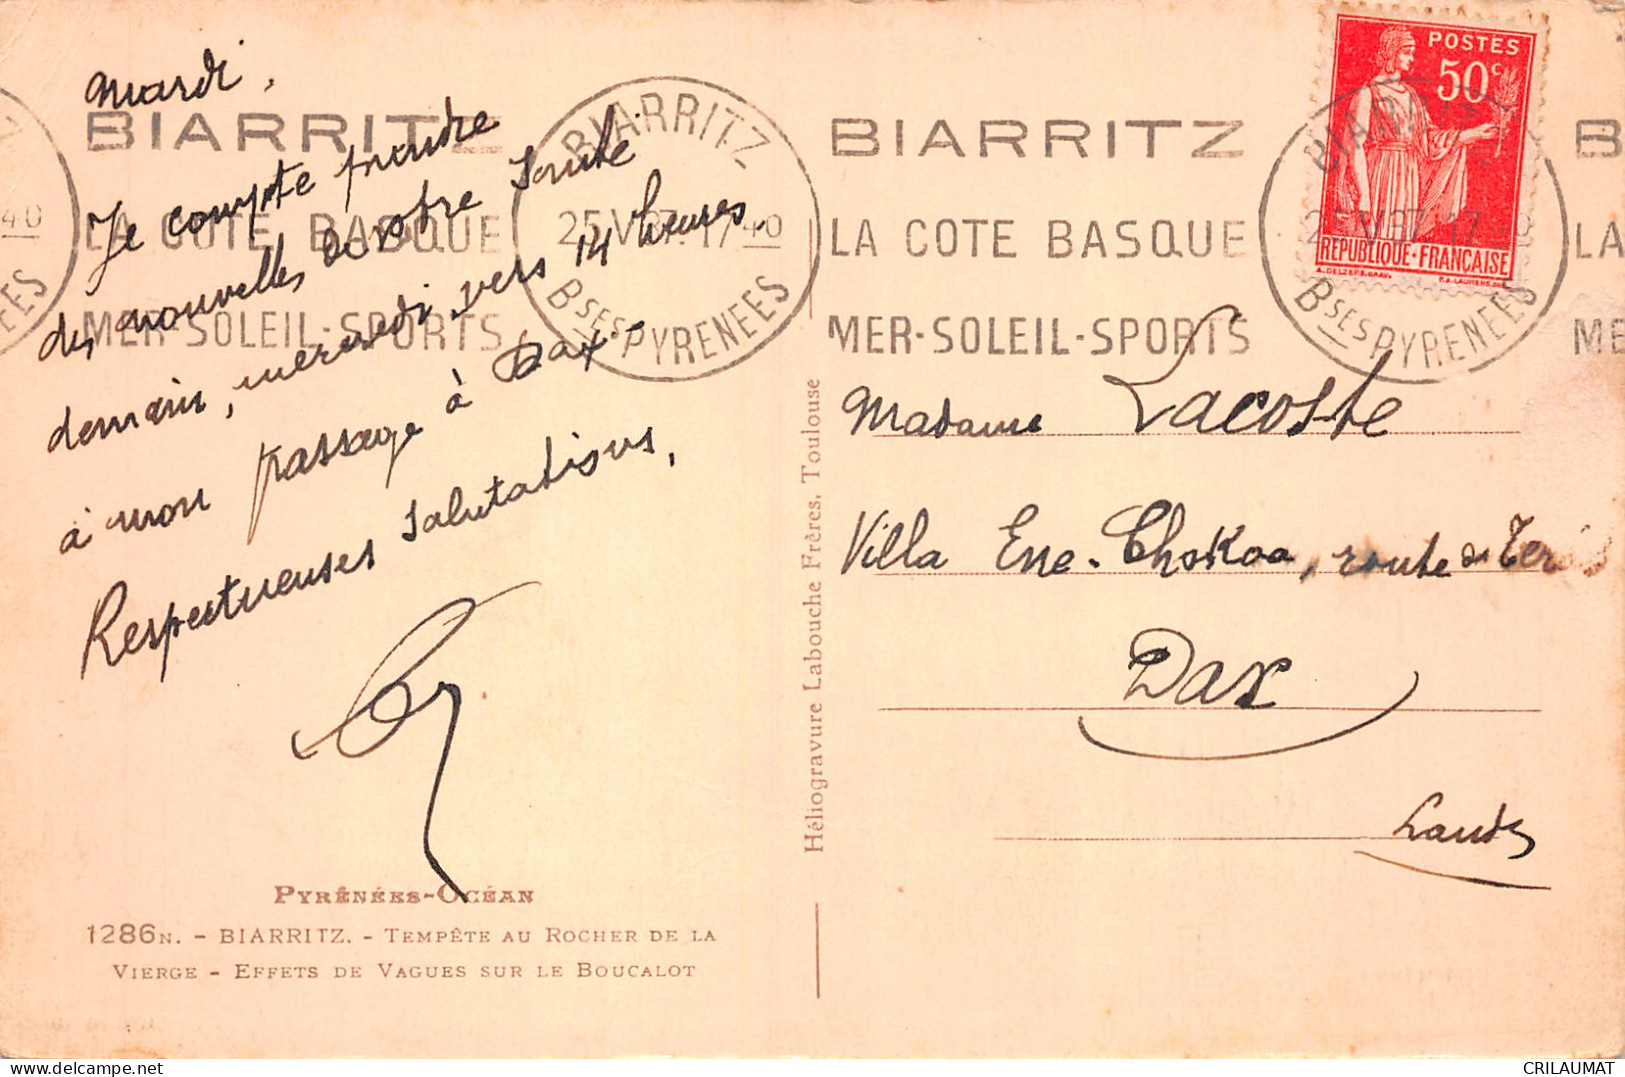 Mardi.
Je compte prendre
des nouvelles de votre santé
demain, mercredi, vers 14 heures,
à mon passage à Dax.
Respectueuses salutations.
BIARRITZ
LA COTE BASQUE
MER-SOLEIL-SPORTS
BIARRITZ
25 V 37. 17 40
Bses PYRENEES
BIARRITZ
LA COTE BASQUE
MER-SOLEIL-SPORTS
BIARRITZ
25 V 37. 17 40
Bses PYRENEES
B
LA
ME
Z
40
NEES
POSTES
50c
REPUBLIQUE-FRANÇAISE
Madame Lacoste
Villa Ene-Chokoa, route de
Dax
Landes
Héliogravure Labouche Frères, Toulouse
PYRÉNÉES-OCÉAN
1286N. - BIARRITZ. - TEMPÊTE AU ROCHER DE LA
VIERGE - EFFETS DE VAGUES SUR LE BOUCALOT
CRILAUMAT